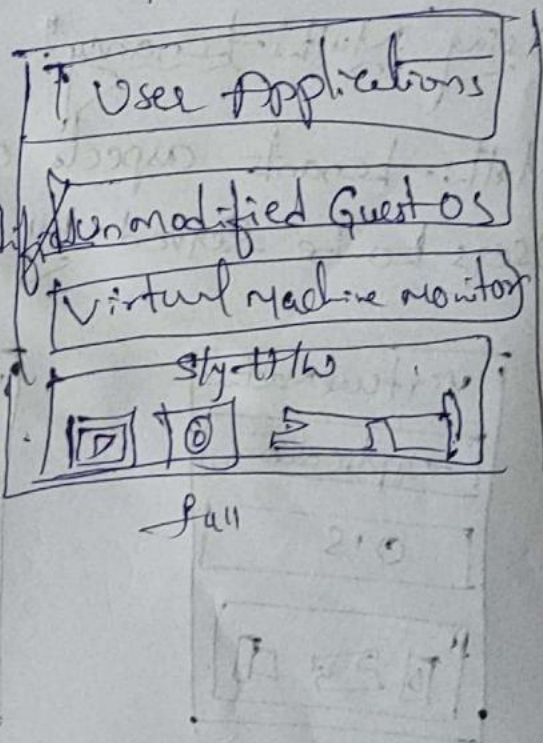 User Applications
Unmodified Guest OS
Virtual Machine Monitor
Sly H/w
full